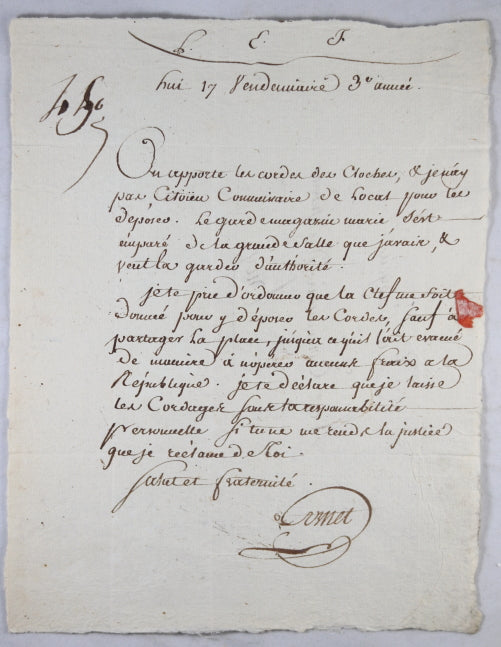 L. E. F.
hui 17 Vendemiaire 3e année.
On apporte les cordes des Cloches, & je n'ay
pas, Citöien Commissaire de Local pour les
déposer. Le garde magasin marie s'est
emparé de la grande Salle que j'avais, &
veut la garder d'authorité.
je te prie d'ordonner que la Clef me soit
donnée pour y déposer les Cordes, sauf à
partager la place, jusqu'a ce qu'il l'ait evacué
de maniere à n'operer aucuns fraix a la
République. je te déclare que je laisse
les Cordages sous ta responsabilité
personnelle si tu ne me rends la justice
que je réclame de toi.
salut et fraternité.